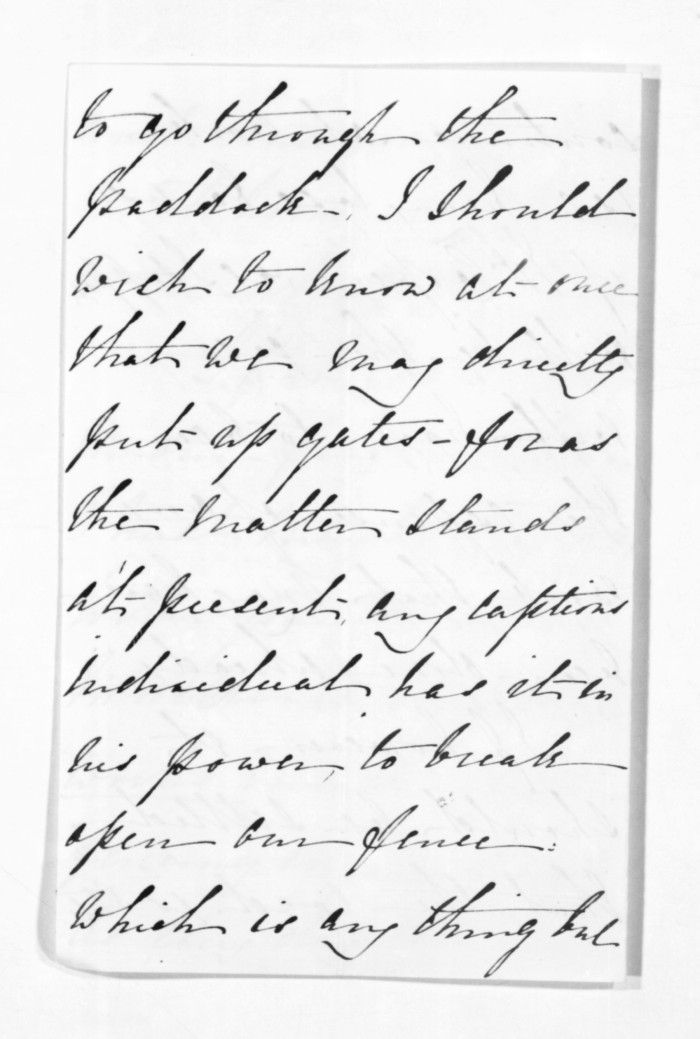 to go through the
paddock. I should
wish to know at once
that we may directly
put up gates - for as
the matter stands
at present, any captious
individual has it in
his power, to break
open our fence:
which is any thing but